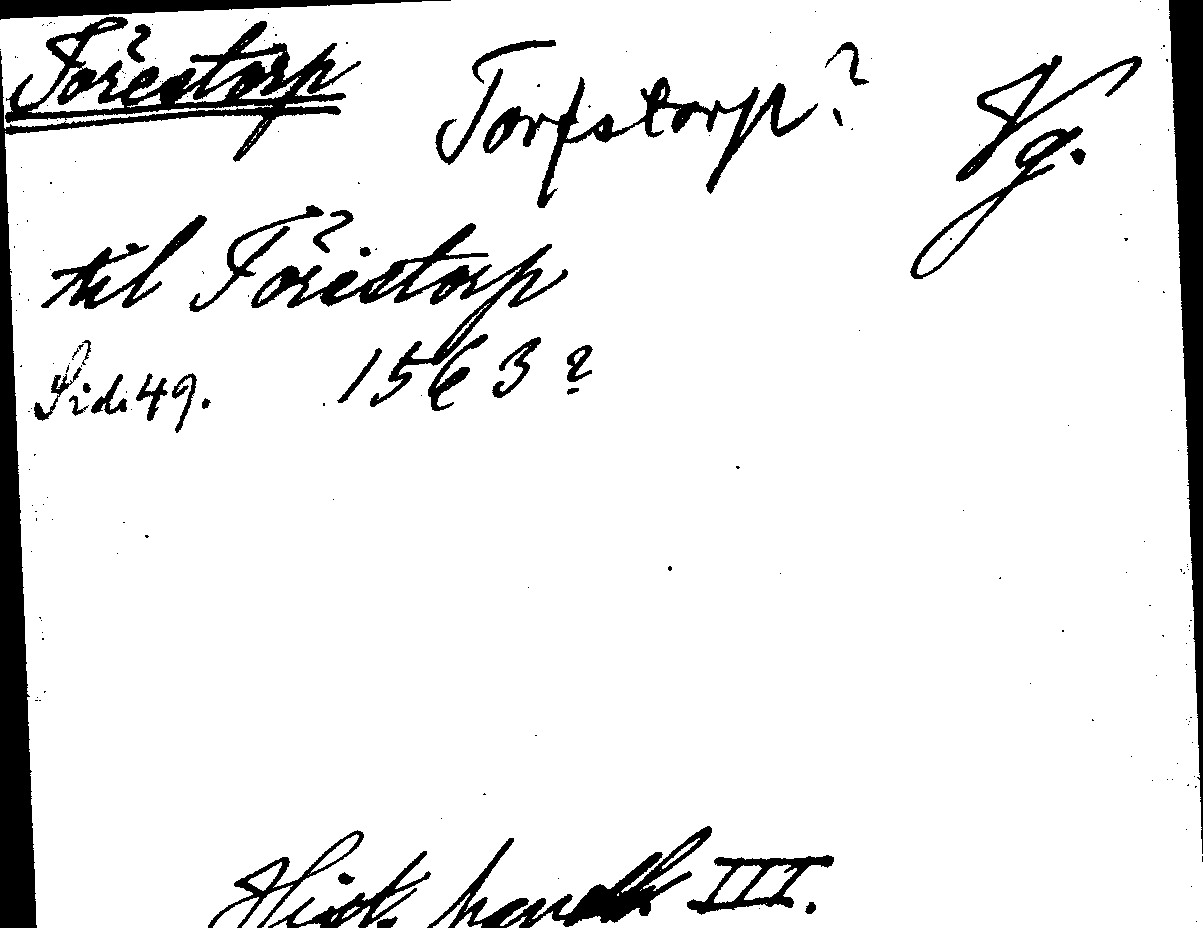 Torestorp Torfstorp? Vg.
til Toristorp
Sid. 49. 1563?
Hist. handl. III.